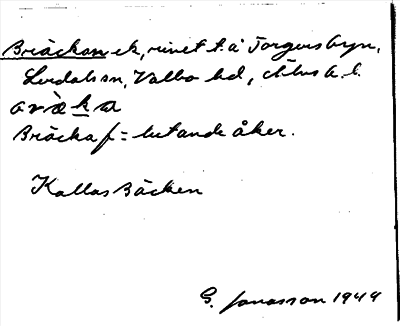 Bräckan ek, rinet t. å Torgersbyn,
Lerdals sn, Valbo hd, Älvsb. l.
Bräcka f = lutande åker.
Kallas Bäcken
G. Jonasson 1944